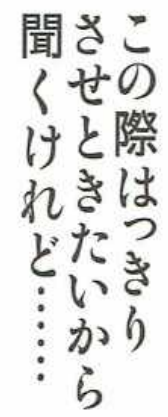 この際はっきり
させときたいから
聞くけれど……